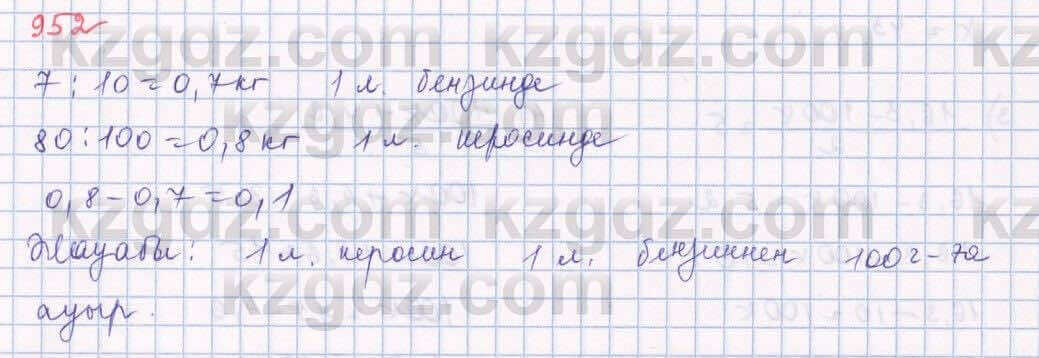 952
7 : 10 = 0,7 кг 1 л. бензинде
80 : 100 = 0,8 кг 1 л. керосинде
0,8 - 0,7 = 0,1
Жауабы: 1 л. керосин 1 л. бензиннен 100 г-ға
ауыр.
kzgdz.com kzgdz.com
kzgdz.com kzgdz.com
kzgdz.com kzgdz.com
kzgdz.com kzgdz.com